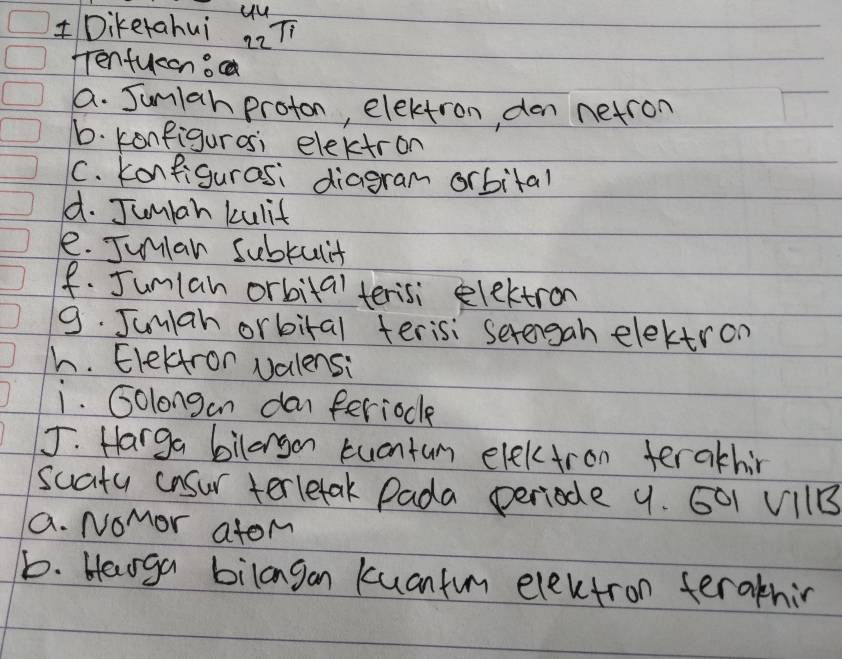 1 Diketahui ⁴⁴₂₂Ti
Tentukan :
a. Jumlah proton, elektron, dan netron
b. konfigurasi elektron
c. konfigurasi diagram orbital
d. Jumlah kulit
e. Jumlah subkulit
f. Jumlah orbital terisi elektron
g. Jumlah orbital terisi setengah elektron
h. Elektron valensi
i. Golongan dan Periode
J. Harga bilangan kuantum elektron terakhir
suatu unsur terletak pada periode 4. Gol VIIB
a. Nomor atom
b. Harga bilangan kuantum elektron terakhir